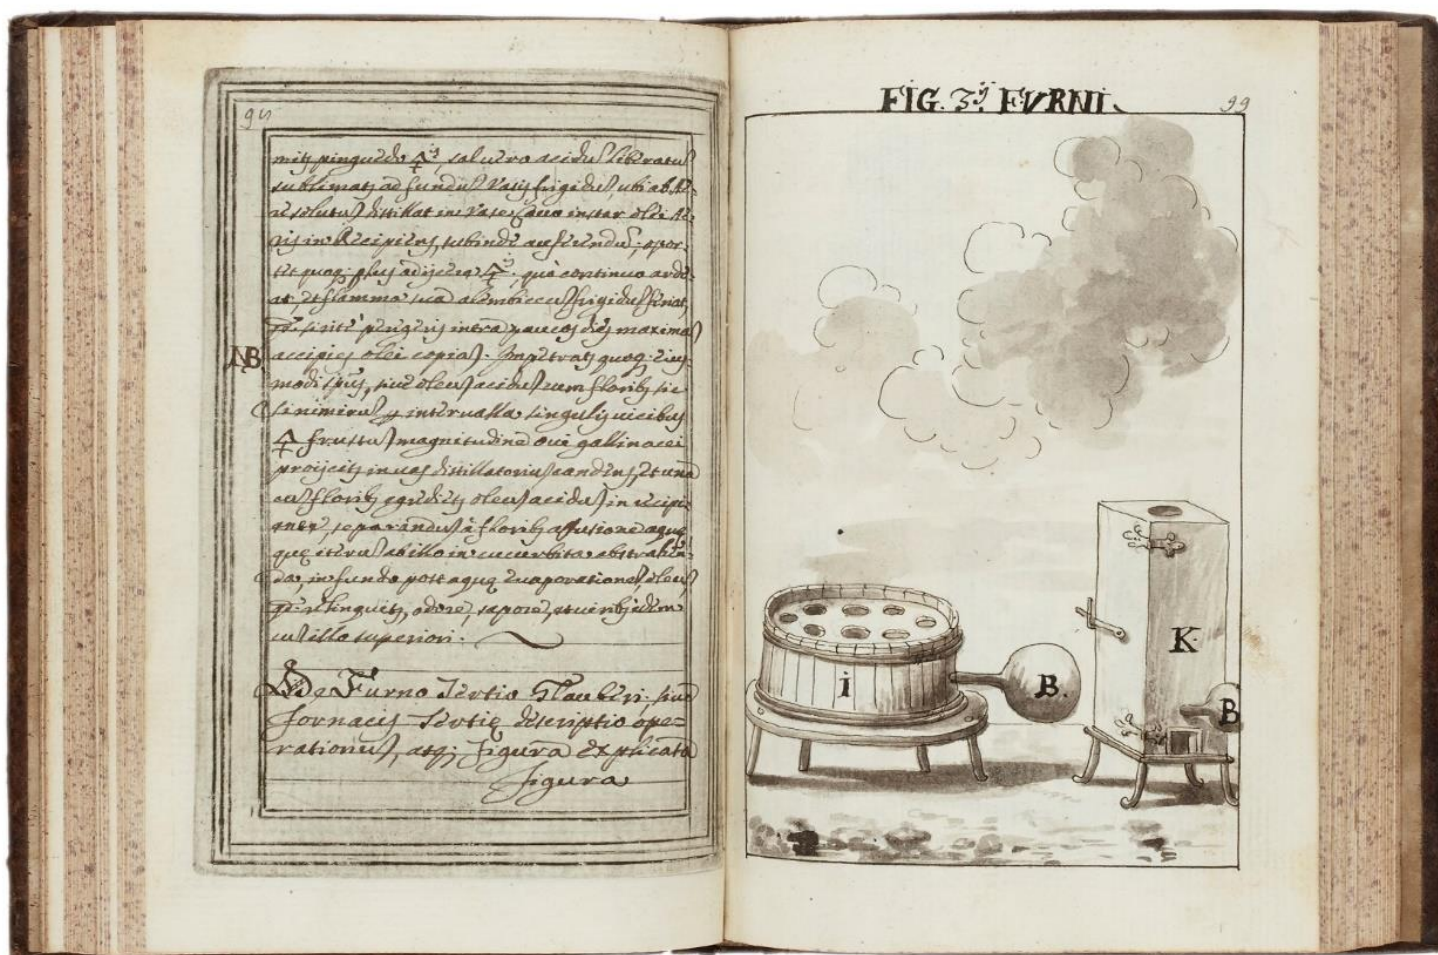 98
mitz pinguedo 🜍is, sal vero acidũ liberatũ
sublimatz ad fundũ Vasis frigidũ, ubi ab
re solutũ distillat in Vase instar olei
ris in Recipiens, subinde auferendũ; opor-
tet quoq; plus adijcere 🜍is, quò continuo arde-
at, et flamma sua alembiccũ frigidũ feriat,
pergeris intra paucos dies maximã
NB accipies olei copiã. Impetratz quoq; eius-
modi spũs, sive oleũ acidũ cum floribz sic
si nimirũ p intervalla singulis vicibus
🜍 frustũ magnitudine ovi gallinacei
proijcitz in vas distillatoriũ candens, et una
cũ floribz egreditz oleũ acidũ in recipi-
ens, separandũ à floribz affusione aquę
quę iterũ ab illo in cucurbita abstrahen-
da, in fundo post aquę evaporationẽ, oleũ
relinquitz, odore, sapore, et viribz idem
cũ illo superiori.
De Furno Tertio Glauberi, sive
fornacis Tertię descriptio ope-
rationũ, atq; figura explicata
figura
FIG. 3ij FVRNI.
99
I
B.
K.
B